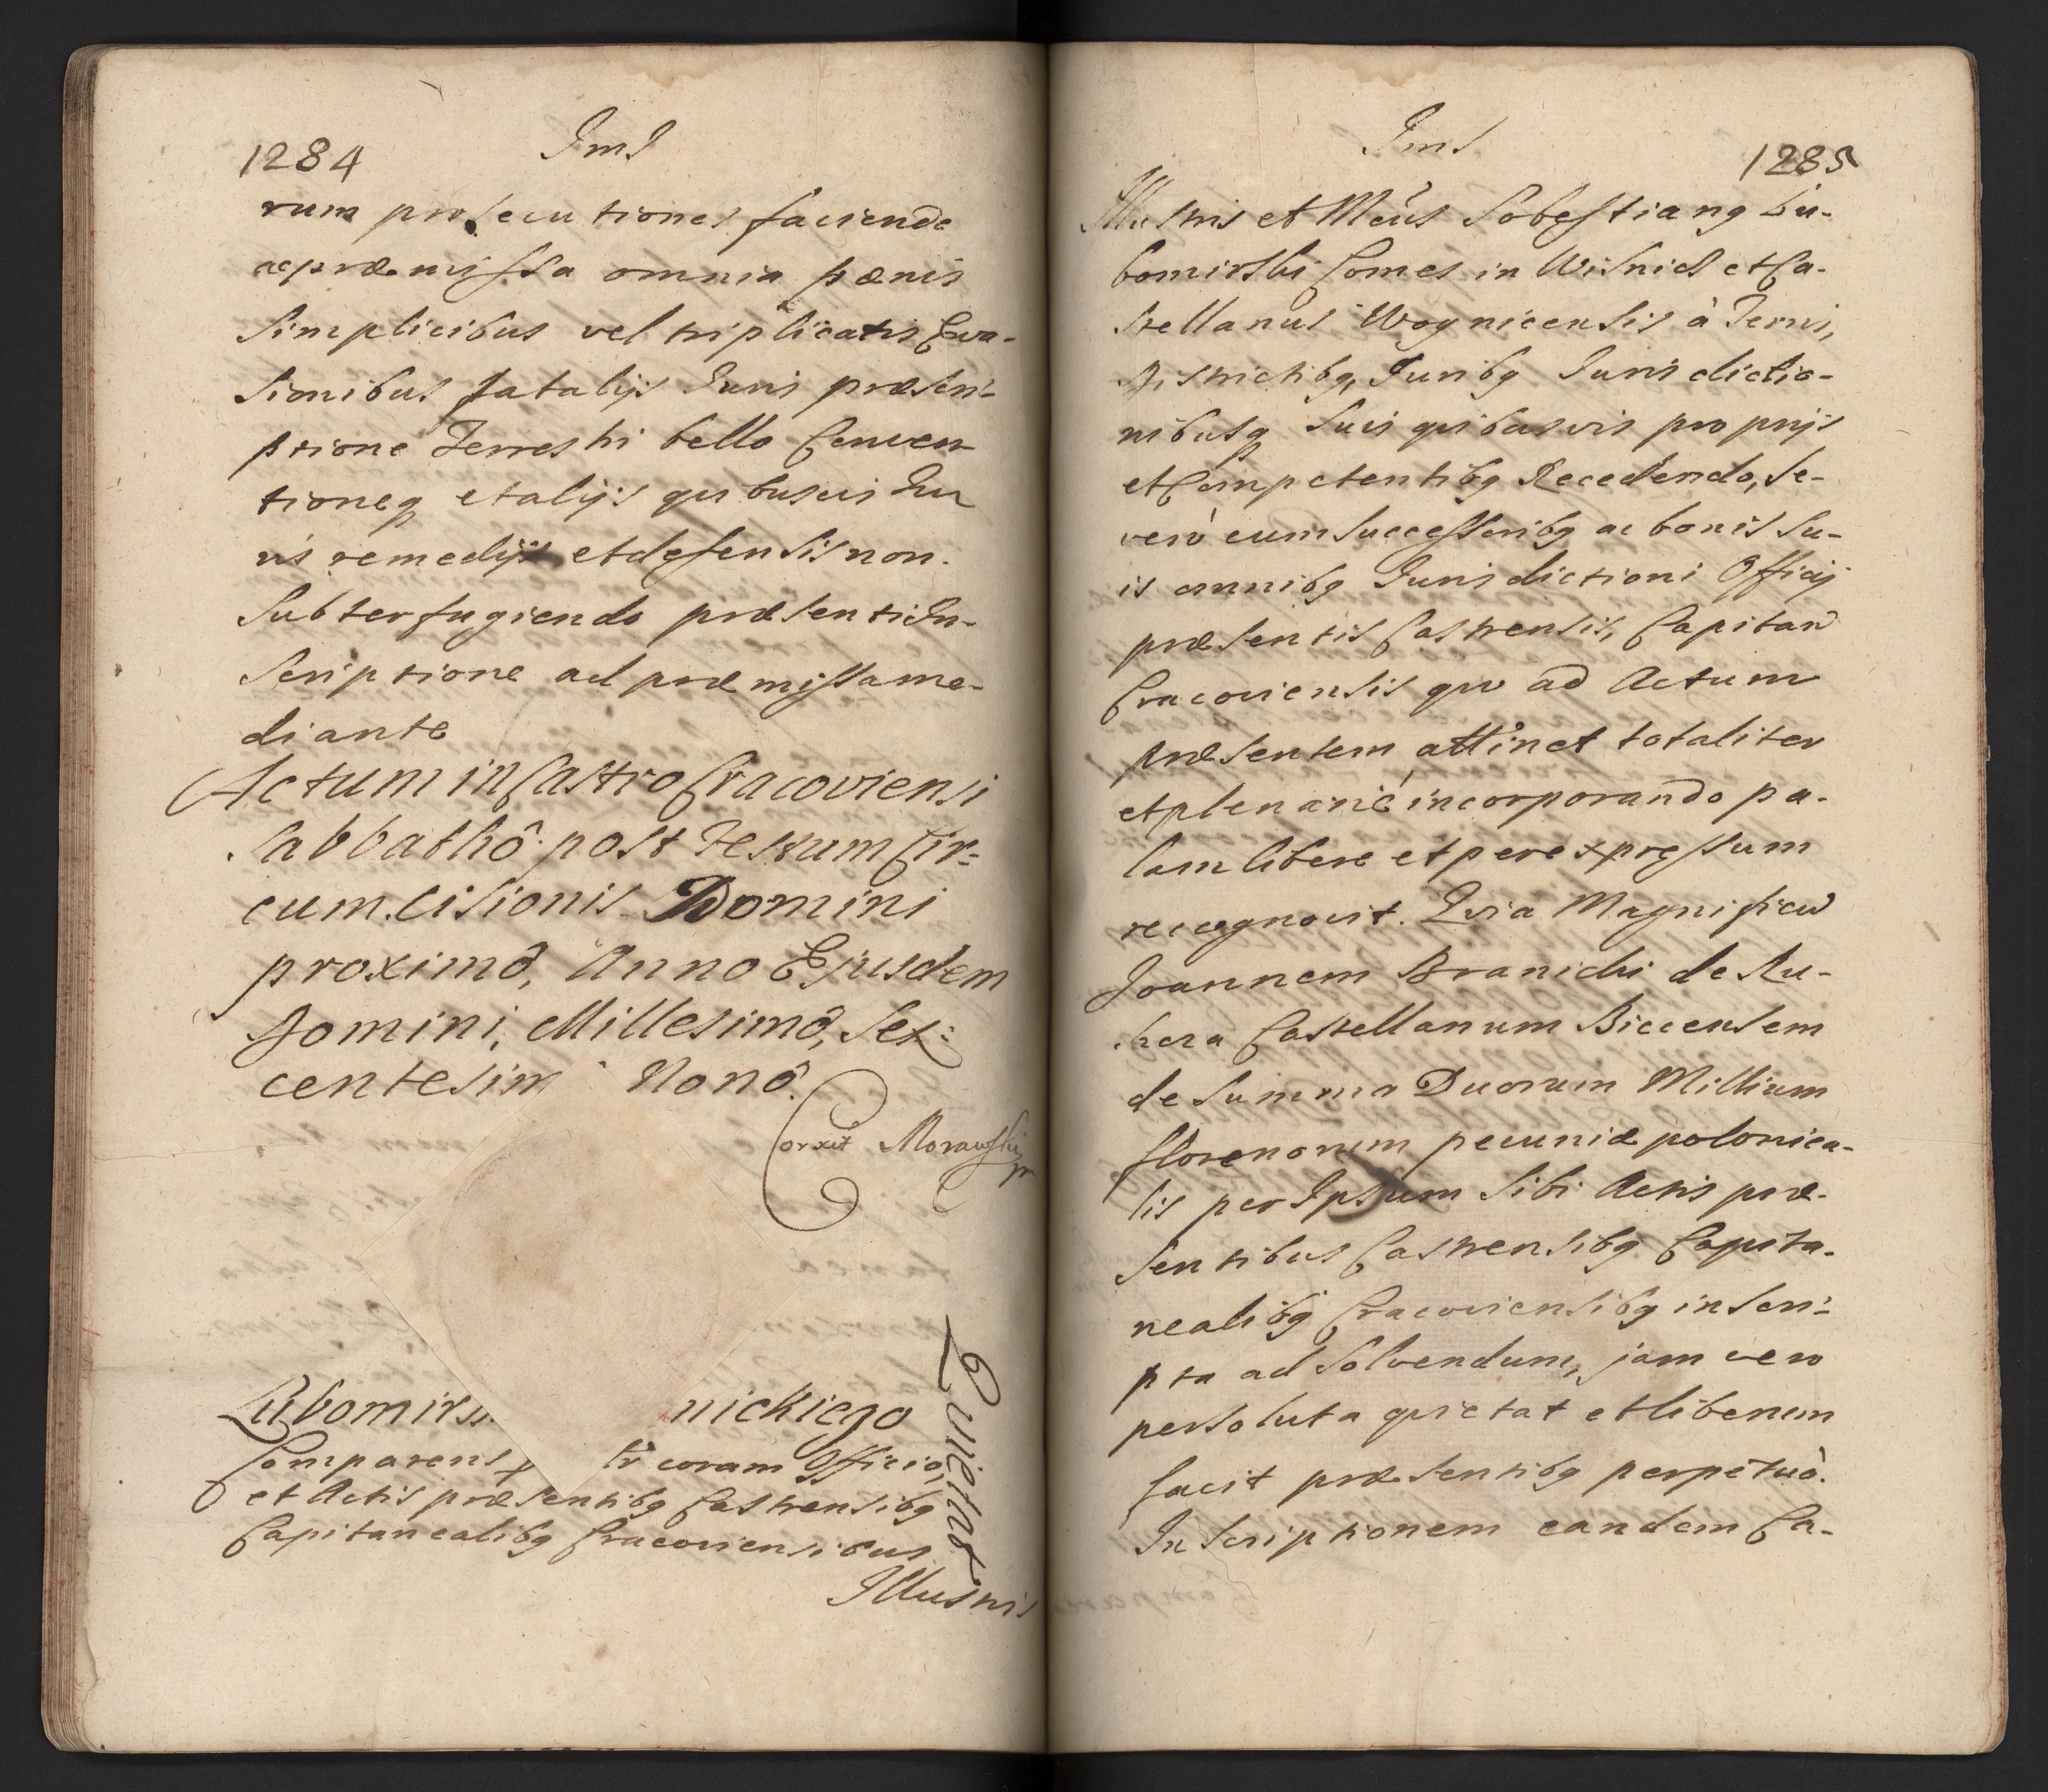 1284
ImI
rum prosecutiones faciendo
ac præmissa omnia pænis
Simplicibus vel triplicatis Eva-
Sionibus fatalijs Juris præscri-
ptione Terrestri bello Conven
tioneq et alijs quibusvis Ju
ris remedijs et defensis non.
Subterfugiendo præsenti In-
Scriptione ad præmissa me-
diante
Actum in Castro Cracoviensi
Sabbathô post Festum Cir=
cumcisionis Domini
proximô, Anno Ejusdem
Domini, Millesimô, Sex:
centesim Nonô.
Corxit Morawski
mp
Lubomirs nickiego
Comparens coram Officio,
et Actis præsentibq Castrensibq
Capitanealibq Cracoviensibus
Quietat
Illustris
ImI
1285
Illustris et Mcus Sobestianq Lu-
bomirski Comes in Wisnicz et Ca-
stellanus Woynicensis à Terris,
Districtibq, Juribq Jurisdictio-
nibusq Suis quibusvis proprijs
et Competentibq Recedendo, Se-
verò cum Successoribq ac bonis Su-
is omnibq Jurisdictioni Officij
præsentis Castrensis, Capitan
Cracoviensis qu ad Actum
præsentem attinet totaliter
et plenariè incorporando pa-
lam libere et per expressum
recognovit. Quia Magnificu
Joannem Branicki de Ru-
szcza Castellanum Biecensem
de Summa Duorum Millium
florenorum pecuniæ polonica-
lis per Ipsum Sibi Actis præ-
Sentibus Castrensibq Capita-
nealibq Cracoviensibq inscri-
pta ad Solvendum, jam vero
persoluta quietat et liberum
facit præsentibq perpetuò.
Inscriptionem eandem Ca-